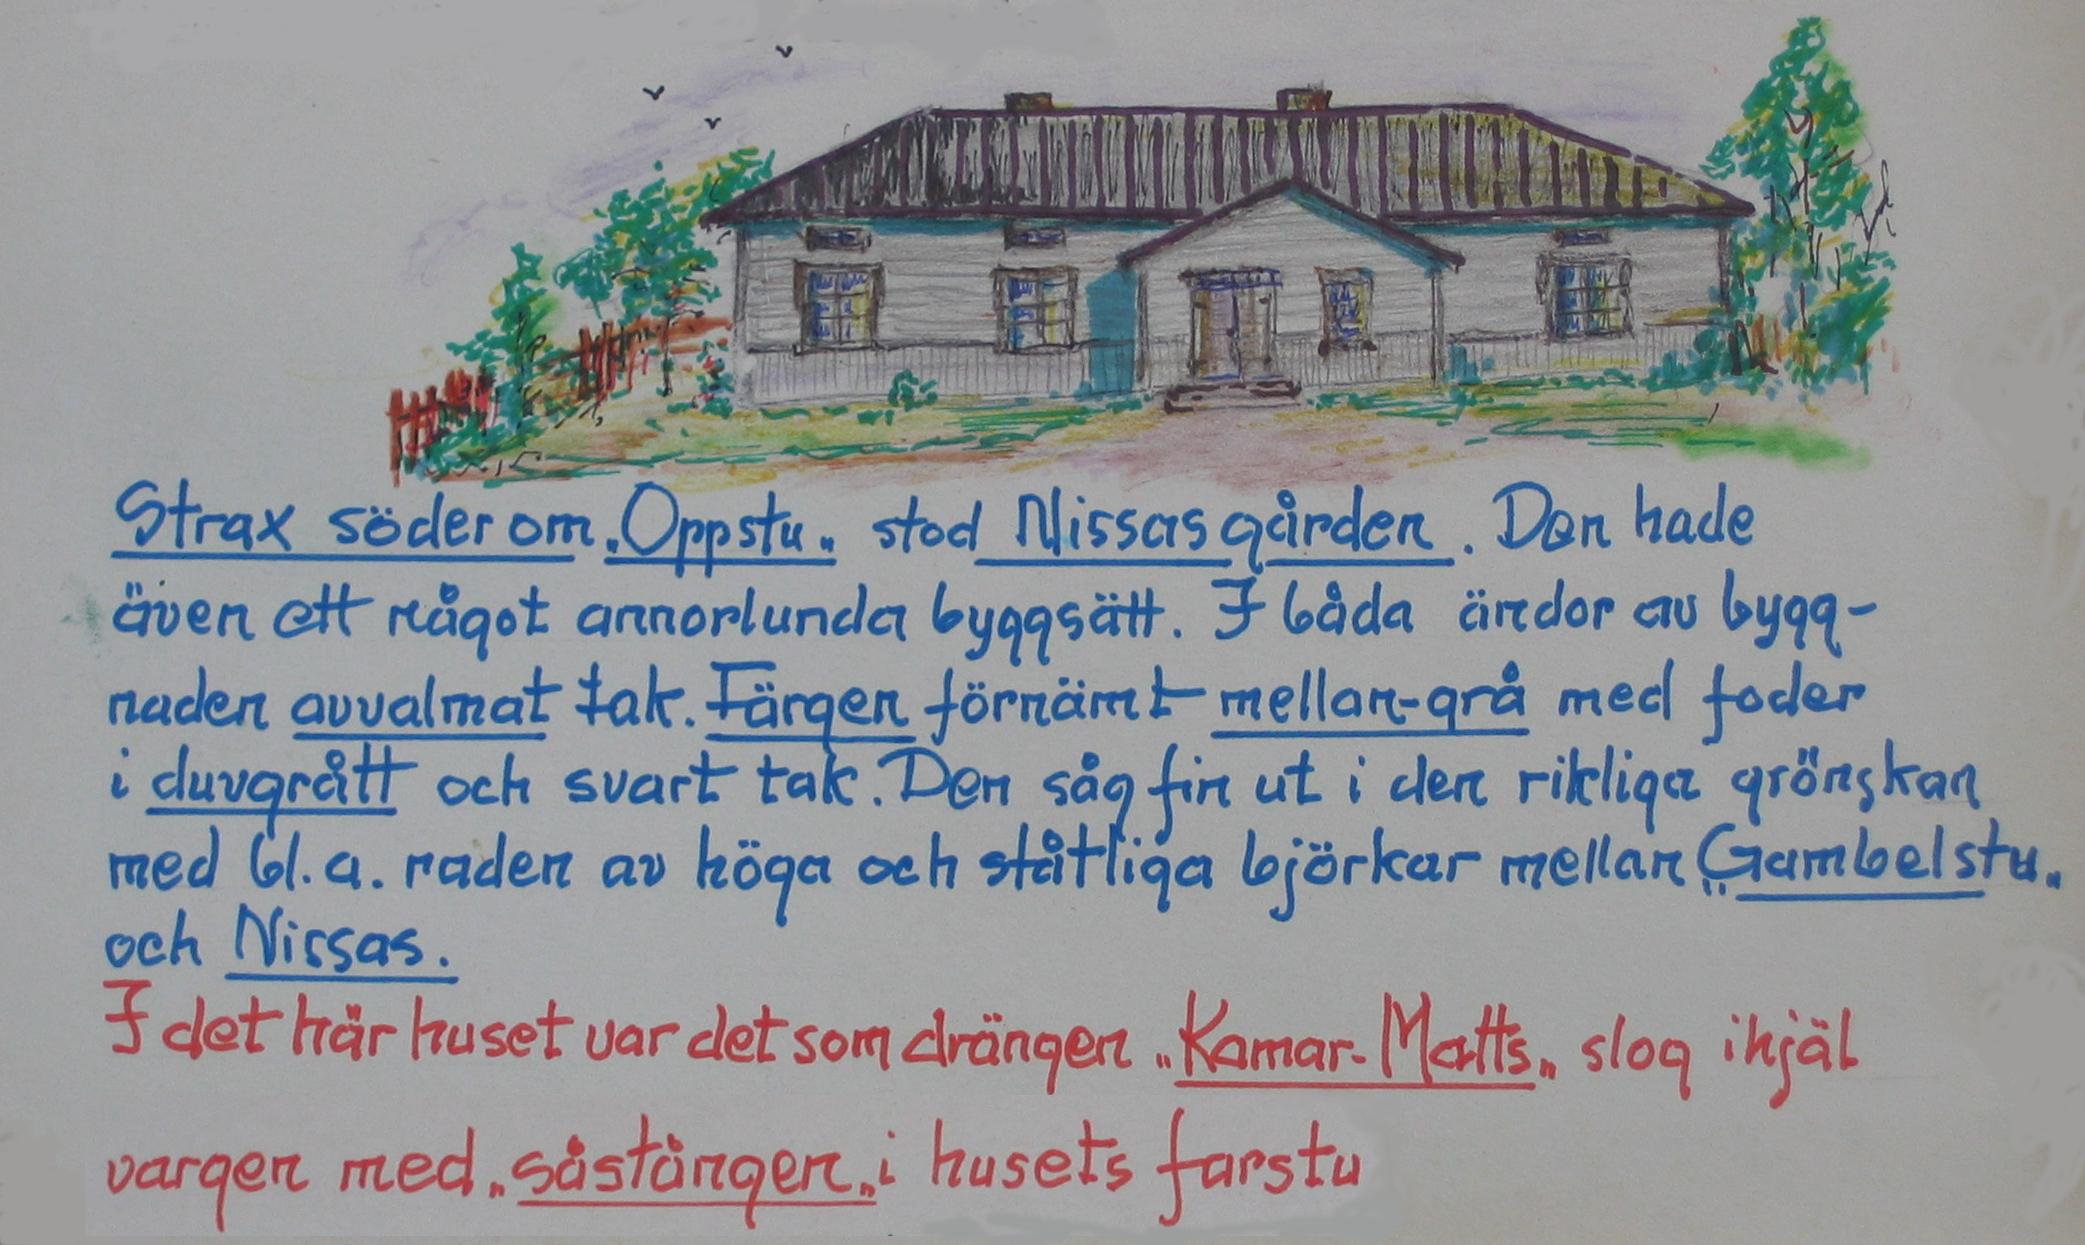 Strax söder om „Oppstu„ stod Nissasgården. Den hade
även ett något annorlunda byggsätt. I båda ändor av bygg-
naden avvalmat tak. Färgen förnämt mellan-grå med foder
i duvgrått och svart tak. Den såg fin ut i den rikliga grönskan
med bl.a. raden av höga och ståtliga björkar mellan „Gambelstu„
och Nissas.
I det här huset var det som drängen „Kamar-Matts„ slog ihjäl
vargen med „såstången„ i husets farstu